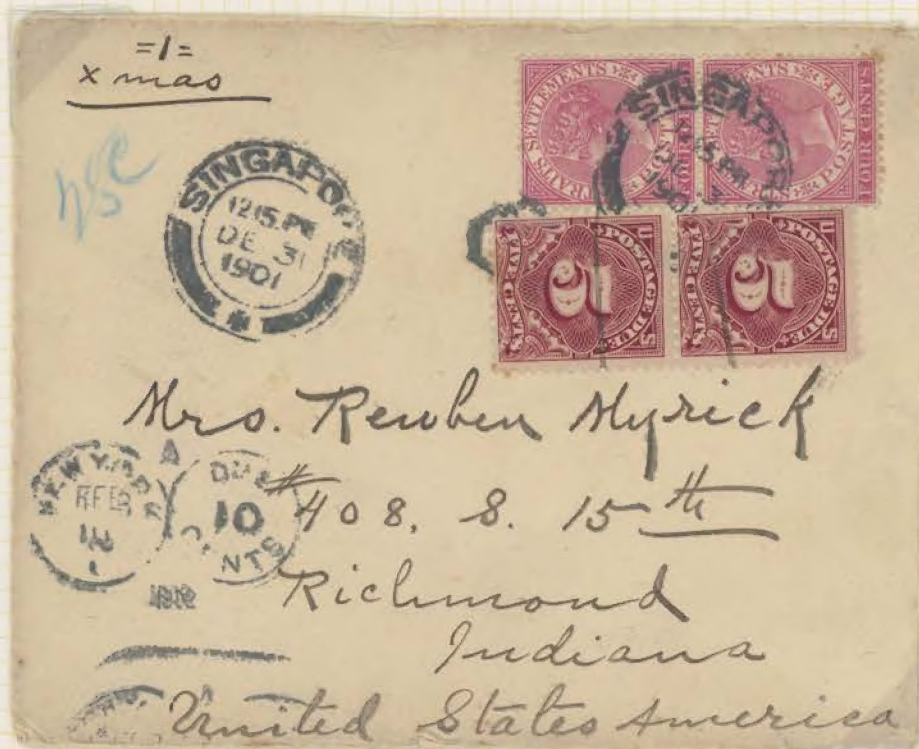 =1=
Xmas
25c
SINGAPORE
12.15.PM
DE 31
1901
STRAITS SETTLEMENTS
POSTAGE
FOUR CENTS
SINGAPORE
12.15.PM
1901
POSTAGE DUE
5
FIVE CENTS
POSTAGE DUE
5
FIVE CENTS
Mrs. Reuben Myrick
#408, S. 15th
Richmond
Indiana
United States America
NEW YORK
FEB
DUE
10
CENTS